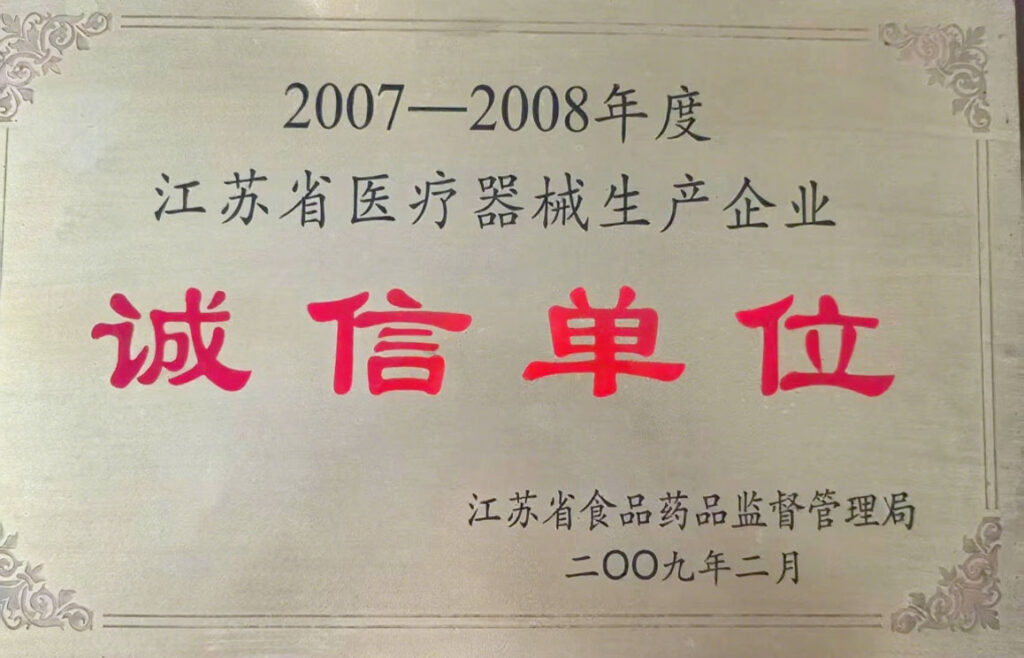 2007—2008年度
江苏省医疗器械生产企业
诚信单位
江苏省食品药品监督管理局
二〇〇九年二月